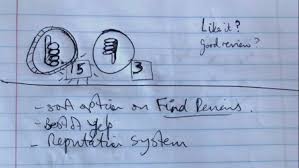 Like it?
Good review?
5 3
- sort option on Find Reviews.
- Best of Yelp
- Reputation System